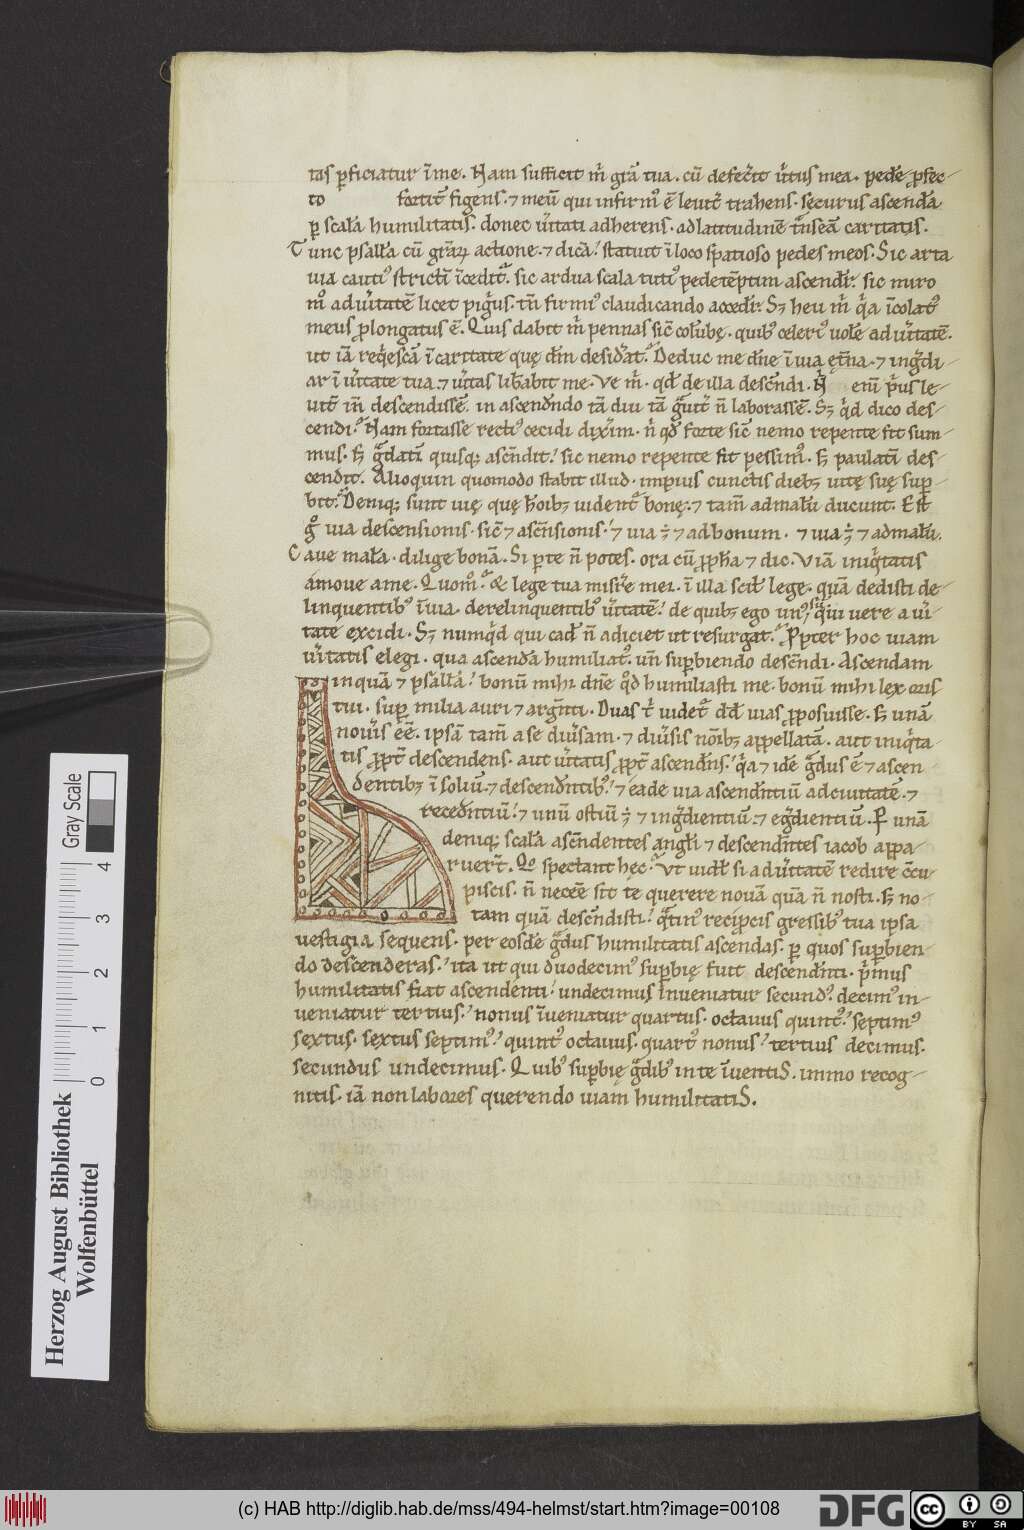 tas ꝑficiatur īme. Nam sufficit m̉ grā tua. cū defec̉it u̓tus mea. pede ꝓfec-
to fortit̄ figens. ⁊ meū qui infirm᷒ ē leuit̄ trahens. securus ascendā
ꝑ scalā humilitatis. donec u̓itati adherens. ad latitudinē t̉nseā caritatis.
Tunc psallā cū gr̄aꝝ actione. ⁊ dicā. statuit ī loco spatioso pedes meos. Sic arta
uia cauti᷒ strictī īcedit᷑. sic ardua scala tuti᷒ pedetēptim ascendit᷑. sic miro
m᷒ ad u̓itatē licet pig̉us. tn̄ firmi᷒ claudicando accedit᷑. Sꝫ heu m̉ q̉a īcolat᷒
meus ꝓlongatus ē. Quis dabit m̉ pennas sic̄ colūbę. quib᷒ celeri᷒ uolē ad u̓itatē.
ut iā req̉escā ī caritate quę dn̄i desid̓at. Deduc me dn̄e ī uia ęt̄na. ⁊ ing̉di-
ar ī u̓itate tua. ⁊ u̓itas lib̓abit me. Ve m̉. qd̄ de illa descn̄di. N̄ eni p̉us le-
uit̄ in̄ descendissē. in ascendendo tā diu tā g̉uit̄ n̄ laborassē. Sꝫ q̉d dico des-
cendi. Nam fortasse recti᷒ cecidi dixim. n̄ qd̄ forte sic̄ nemo repente fit sum-
mus. sꝫ g̉datī quisqꝫ ascendit. sic nemo repente fit pessim᷒. sꝫ paulatī des-
cendit. Alioquin quomodo stabit illud. impius cunctis diebꝫ uitę suę sup̄-
bit. Deniqꝫ sunt uię quę hoībꝫ uident᷑ bonę. ⁊ tam̄ ad malū ducunt. Est
g᷒ uia descensionis. sic̄ ⁊ ascn̄sionis. ⁊ uia ē ⁊ ad bonum. ⁊ uia ē ⁊ ad malū.
Caue malā. dilige bonā. Si per te n̄ potes. ora cū ꝓph̄a ⁊ dic. Viā iniq̉tatis
amoue a me. Quom᷒. & lege tua misr̄e mei. ī illa scil̄ lege. quā dedisti de-
linquentib᷒ ī uia. derelinquentib᷒ u̓itatē. de quibꝫ ego un᷒ sū q̉ui uere a u̓i-
tate excidi. Sꝫ numq̉d qui cad̄ n̄ adiciet ut resurgat. Ꝓpter hoc uiam
u̓itatis elegi. qua ascendā humiliat᷒. un̄ sup̄biendo descn̄di. Ascendam
inquā ⁊ psallā. bonū mihi dn̄e q᷒d humiliasti me. bonū mihi lex oris
tui. sup̄ milia auri ⁊ argn̄ti. Duas t̉ uidet᷑ dd̄ uias ꝓposuisse. sꝫ unā
nou̓is eē̄. ipsā tam̄ a se diu̓sam. ⁊ diu̓sis noībꝫ appellatā. aut iniq̉ta-
tis ꝓpt̄ descendens. aut u̓itatis ꝓpt̄ ascendn̄s. q̉a ⁊ idē g̉dus ē ⁊ ascen-
dentibꝫ ī soliū. ⁊ descendentib᷒. ⁊ eade uia ascendn̄tiū ad ciuitatē. ⁊
recedn̄tiū. ⁊ unū ostiū ē ⁊ ing̉dientiū. ⁊ eg̉dientiū. ꝑ unā
deniqꝫ scalā ascn̄dentes angl̄i ⁊ descendn̄tes iacob appa-
ruer̄t. Qo spectant hęc. Vt uidel̄ si ad u̓itatē redire c̄cu-
piscis. n̄ necēe sit te querere nouā quā n̄ nosti. sꝫ no-
tam quā descn̄disti. q̉tin᷒ reciꝓcis gressib᷒ tua ipsa
uestigia sequens. per eosdē g̉dus humilitatis ascendas. ꝑ quos sup̄bien-
do descenderas. ita ut qui duodecim᷒ sup̄bię fuit descendn̄ti. p̉mus
humilitatis fiat ascendenti. undecimus inueniatur secund᷒. decim᷒ in-
ueniatur tertius. nonus īueniatur quartus. octauus quint᷒. septim᷒
sextus. sextus septim᷒. quint᷒ octauus. quart᷒ nonus. tertius decimus.
secundus undecimus. Quib᷒ sup̄bię g̉dib᷒ in te īuentis. immo recog-
nitis. iā non labores querendo uiam humilitatis.
Herzog August Bibliothek
Wolfenbüttel
Gray Scale
0 1 2 3 4
(c) HAB http://diglib.hab.de/mss/494-helmst/start.htm?image=00108
DFG
cc
BY SA